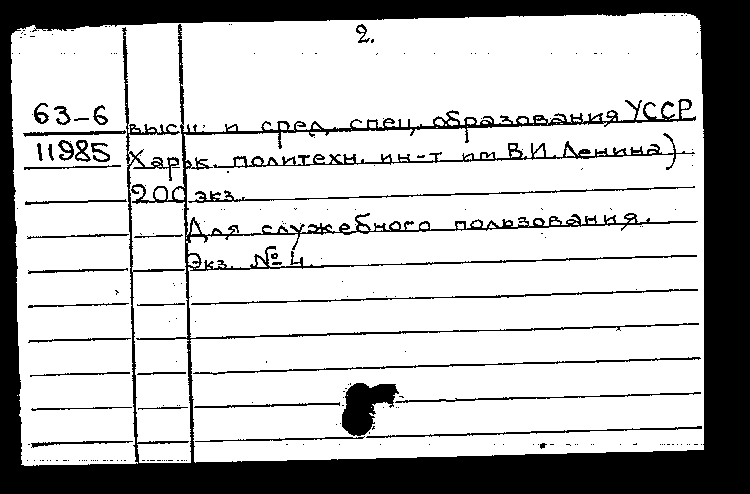 2.
63-6 высш. и сред. спец. образования УССР
11985 Харьк. политехн. ин-т им В.И.Ленина)
200 экз.
Для служебного пользования.
Экз. № 4.